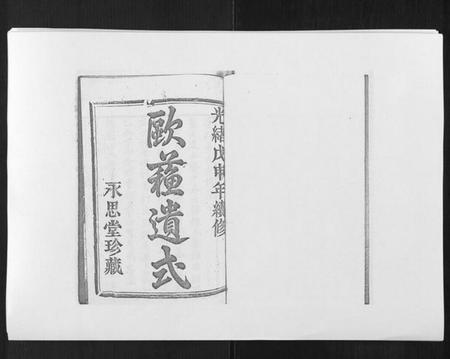 光緒戊申年續修
歐蘓遺式
永思堂珍藏